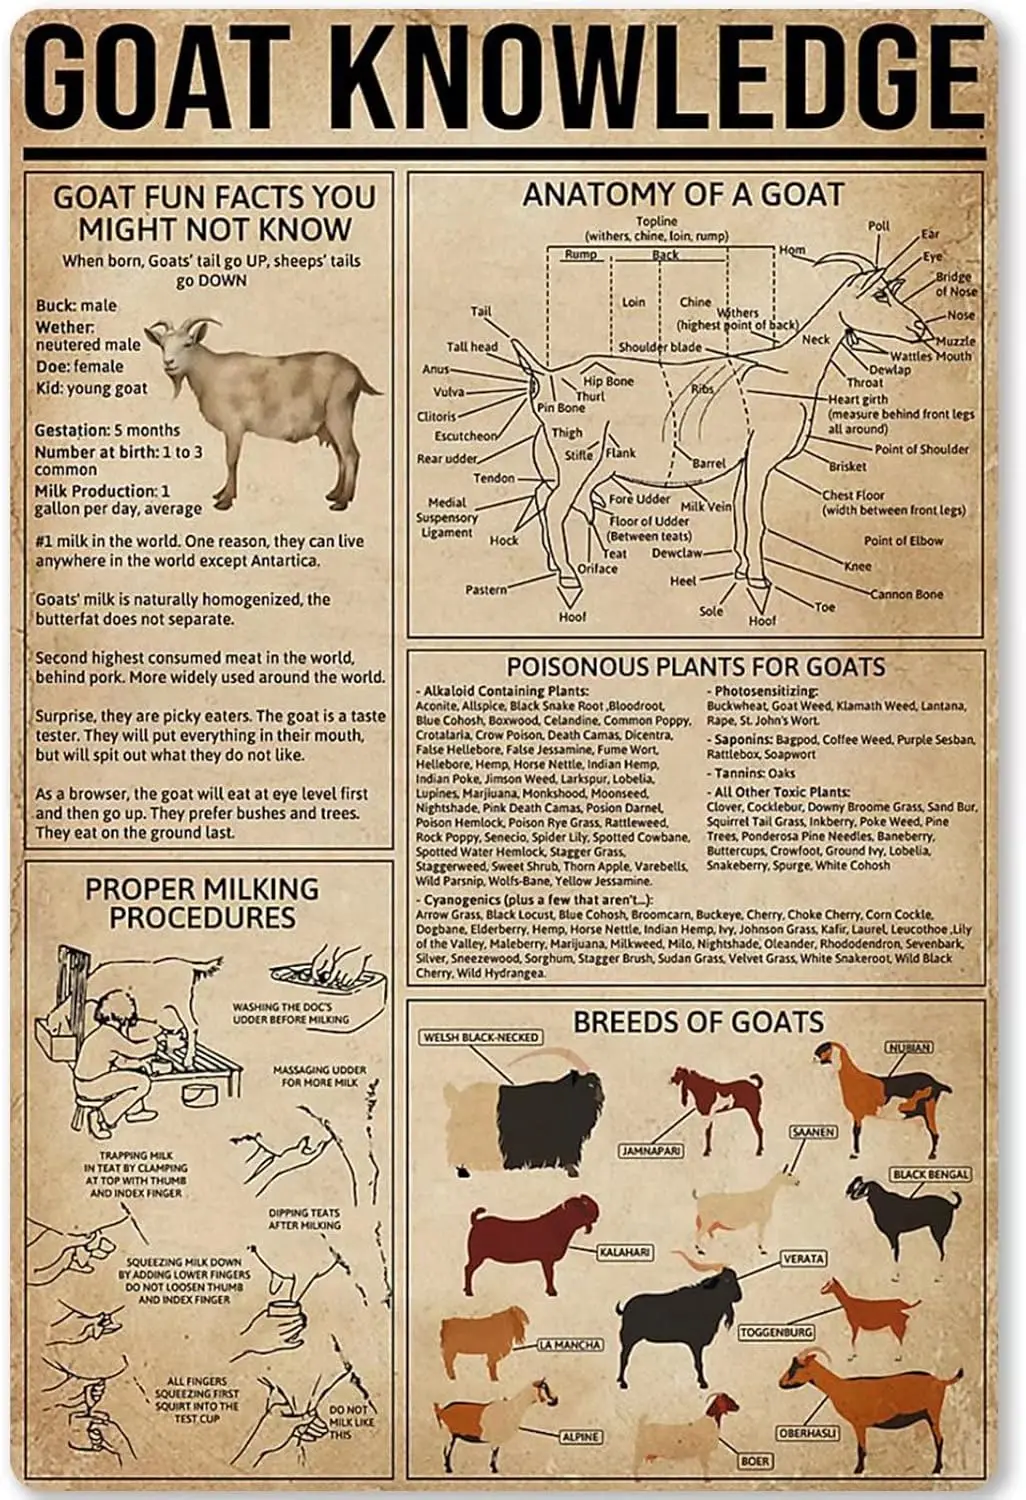 GOAT KNOWLEDGE
GOAT FUN FACTS YOU
MIGHT NOT KNOW
When born, Goats' tail go UP, sheeps' tails
go DOWN
Buck: male
Wether:
neutered male
Doe: female
Kid: young goat
Gestation: 5 months
Number at birth: 1 to 3
common
Milk Production: 1
gallon per day, average
#1 milk in the world. One reason, they can live
anywhere in the world except Antartica.
Goats' milk is naturally homogenized, the
butterfat does not separate.
Second highest consumed meat in the world,
behind pork. More widely used around the world.
Surprise, they are picky eaters. The goat is a taste
tester. They will put everything in their mouth,
but will spit out what they do not like.
As a browser, the goat will eat at eye level first
and then go up. They prefer bushes and trees.
They eat on the ground last.
PROPER MILKING
PROCEDURES
WASHING THE DOC'S
UDDER BEFORE MILKING
MASSAGING UDDER
FOR MORE MILK
TRAPPING MILK
IN TEAT BY CLAMPING
AT TOP WITH THUMB
AND INDEX FINGER
DIPPING TEATS
AFTER MILKING
SQUEEZING MILK DOWN
BY ADDING LOWER FINGERS
DO NOT LOOSEN THUMB
AND INDEX FINGER
ALL FINGERS
SQUEEZING FIRST
SQUIRT INTO THE
TEST CUP
DO NOT
MILK LIKE
THIS
ANATOMY OF A GOAT
Topline
(withers, chine, loin, rump)
Rump
Back
Hom
Poll
Ear
Eye
Bridge
of Nose
Nose
Muzzle
Mouth
Wattles
Dewlap
Throat
Neck
Loin
Chine
Withers
(highest point of back)
Shoulder blade
Tail
Tall head
Anus
Vulva
Clitoris
Escutcheon
Rear udder
Tendon
Medial
Suspensory
Ligament
Hock
Pastern
Hoof
Hip Bone
Thurl
Pin Bone
Thigh
Stifle
Flank
Ribs
Barrel
Fore Udder
Milk Vein
Floor of Udder
(Between teats)
Teat
Oriface
Dewclaw
Heel
Sole
Hoof
Toe
Heart girth
(measure behind front legs
all around)
Point of Shoulder
Brisket
Chest Floor
(width between front legs)
Point of Elbow
Knee
Cannon Bone
POISONOUS PLANTS FOR GOATS
- Alkaloid Containing Plants:
Aconite, Allspice, Black Snake Root ,Bloodroot,
Blue Cohosh, Boxwood, Celandine, Common Poppy,
Crotalaria, Crow Poison, Death Camas, Dicentra,
False Hellebore, False Jessamine, Fume Wort,
Hellebore, Hemp, Horse Nettle, Indian Hemp,
Indian Poke, Jimson Weed, Larkspur, Lobelia,
Lupines, Marjiuana, Monkshood, Moonseed,
Nightshade, Pink Death Camas, Posion Darnel,
Poison Hemlock, Poison Rye Grass, Rattleweed,
Rock Poppy, Senecio, Spider Lily, Spotted Cowbane,
Spotted Water Hemlock, Stagger Grass,
Staggerweed, Sweet Shrub, Thorn Apple, Varebells,
Wild Parsnip, Wolfs-Bane, Yellow Jessamine.
- Photosensitizing:
Buckwheat, Goat Weed, Klamath Weed, Lantana,
Rape, St. John's Wort.
- Saponins: Bagpod, Coffee Weed, Purple Sesban,
Rattlebox, Soapwort
- Tannins: Oaks
- All Other Toxic Plants:
Clover, Cocklebur, Downy Broome Grass, Sand Bur,
Squirrel Tail Grass, Inkberry, Poke Weed, Pine
Trees, Ponderosa Pine Needles, Baneberry,
Buttercups, Crowfoot, Ground Ivy, Lobelia,
Snakeberry, Spurge, White Cohosh
- Cyanogenics (plus a few that aren't...):
Arrow Grass, Black Locust, Blue Cohosh, Broomcarn, Buckeye, Cherry, Choke Cherry, Corn Cockle,
Dogbane, Elderberry, Hemp, Horse Nettle, Indian Hemp, Ivy, Johnson Grass, Kafir, Laurel, Leucothoe ,Lily
of the Valley, Maleberry, Marijuana, Milkweed, Milo, Nightshade, Oleander, Rhododendron, Sevenbark,
Silver, Sneezewood, Sorghum, Stagger Brush, Sudan Grass, Velvet Grass, White Snakeroot, Wild Black
Cherry, Wild Hydrangea.
BREEDS OF GOATS
WELSH BLACK-NECKED
NUBIAN
JAMNAPARI
SAANEN
BLACK BENGAL
KALAHARI
VERATA
TOGGENBURG
LA MANCHA
ALPINE
BOER
OBERHASLI